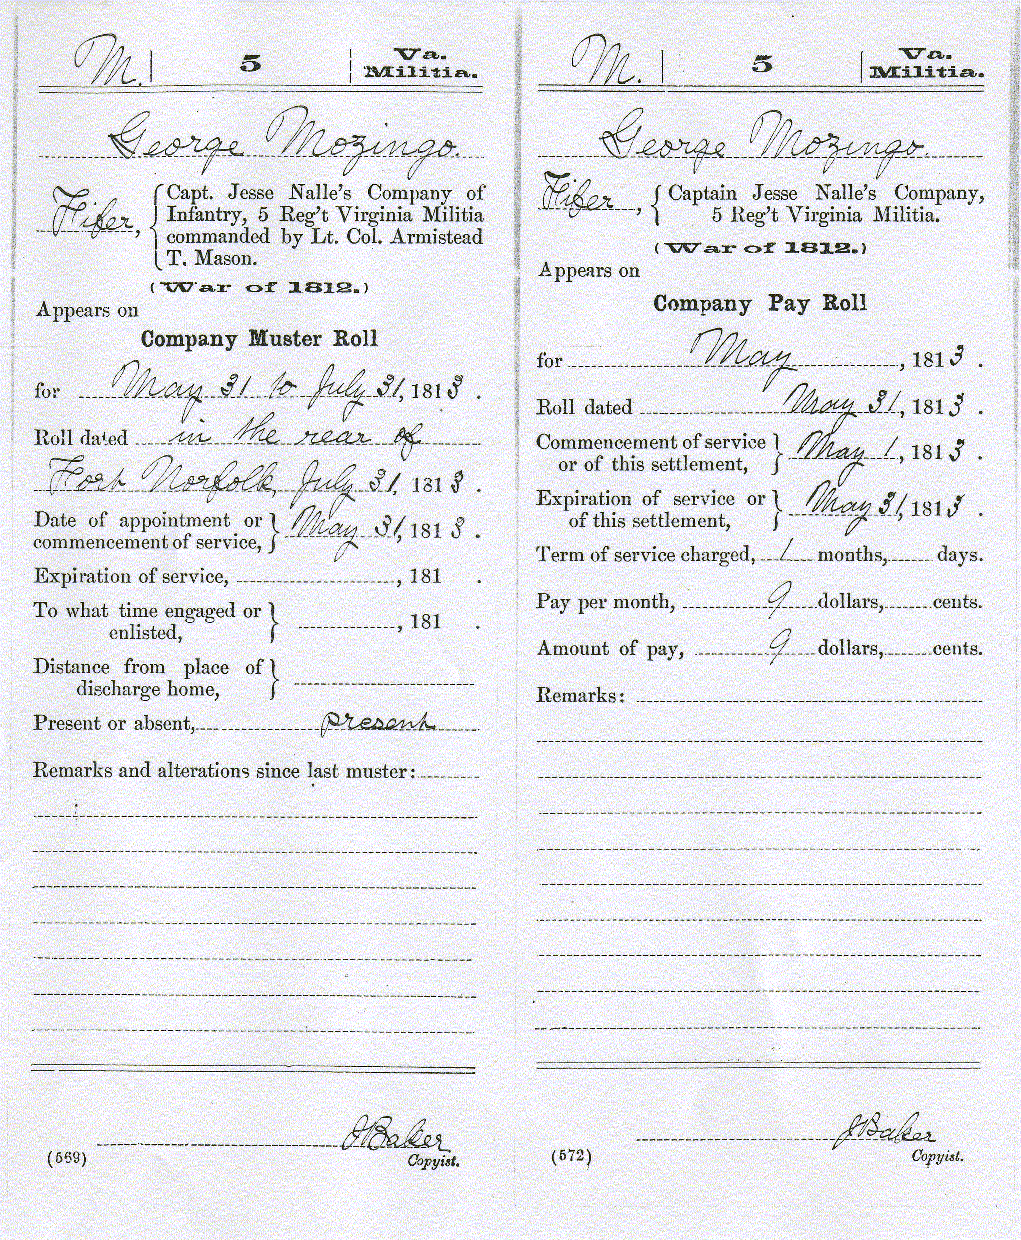 M. | 5 | Va. Militia.
George Mozingo.
Fifer, { Capt. Jesse Nalle's Company of
Infantry, 5 Reg't Virginia Militia
commanded by Lt. Col. Armistead
T. Mason.
(War of 1812.)
Appears on
Company Muster Roll
for May 31 to July 31, 1813.
Roll dated in the rear of
Fort Norfolk, July 31, 1813.
Date of appointment or
commencement of service, } May 31, 1813.
Expiration of service, , 181 .
To what time engaged or
enlisted, } , 181 .
Distance from place of
discharge home, }
Present or absent, present
Remarks and alterations since last muster:
J Baker
(569) Copyist.
M. | 5 | Va. Militia.
George Mozingo.
Fifer, { Captain Jesse Nalle's Company,
5 Reg't Virginia Militia.
(War of 1812.)
Appears on
Company Pay Roll
for May, 1813.
Roll dated May 31, 1813.
Commencement of service
or of this settlement, } May 1, 1813.
Expiration of service or
of this settlement, } May 31, 1813.
Term of service charged, 1 months, days.
Pay per month, 9 dollars, cents.
Amount of pay, 9 dollars, cents.
Remarks:
J Baker
(572) Copyist.